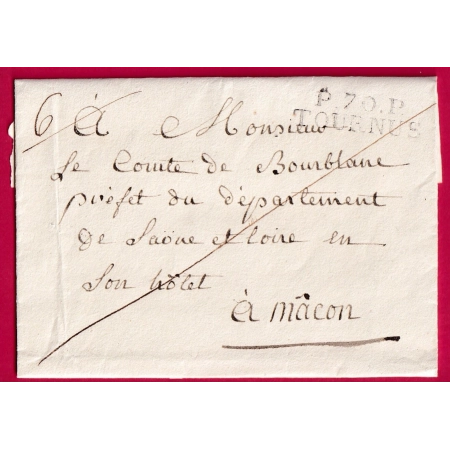 P.70.P.
TOURNUS
6
À Monsieur
Le Comte de Bourblanc
préfet du département
de Saône et loire en
Son hôtel
à mâcon